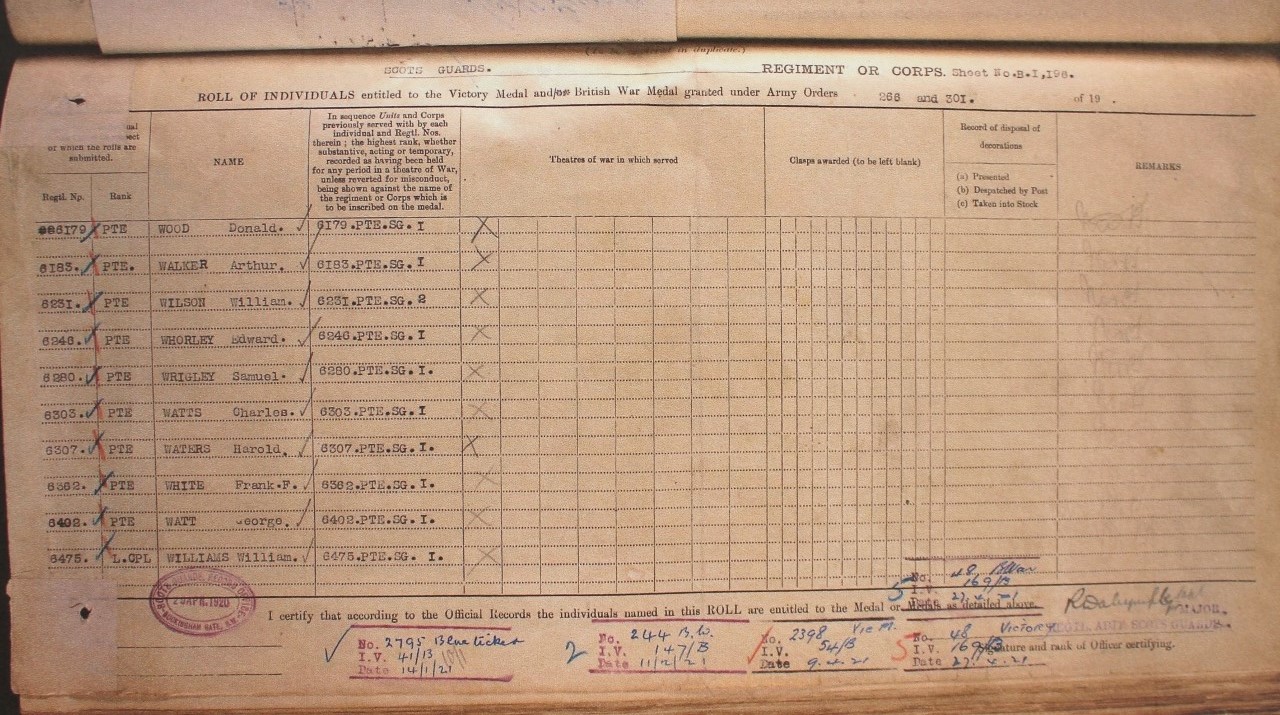 (To be rendered in duplicate.)
SCOTS GUARDS. REGIMENT OR CORPS. Sheet No.B.I,196.
ROLL OF INDIVIDUALS entitled to the Victory Medal and/or British War Medal granted under Army Orders 266 and 301. of 19 .
of which the rolls are submitted.
Regtl. No.
Rank
NAME
In sequence Units and Corps
previously served with by each
individual and Regtl. Nos.
therein ; the highest rank, whether
substantive, acting or temporary,
recorded as having been held
for any period in a theatre of War,
unless reverted for misconduct,
being shown against the name of
the regiment or Corps which is
to be inscribed on the medal.
Theatres of war in which served
Clasps awarded (to be left blank)
Record of disposal of
decorations
(a) Presented
(b) Despatched by Post
(c) Taken into Stock
REMARKS
6179 PTE WOOD Donald. 6179.PTE.SG. I
6183. PTE. WALKER Arthur. 6183.PTE.SG. I
6231. PTE WILSON William. 6231.PTE.SG. 2
6246. PTE WHORLEY Edward. 6246.PTE.SG. I
6280. PTE WRIGLEY Samuel. 6280.PTE.SG. I.
6303. PTE WATTS Charles. 6303.PTE.SG. I
6307. PTE WATERS Harold. 6307.PTE.SG. I.
6362. PTE WHITE Frank.F. 6362.PTE.SG. I.
6402. PTE WATT George. 6402.PTE.SG. I.
6475. L.CPL WILLIAMS William. 6475.PTE.SG. I.
SCOTS GUARDS, RECORD OFFICE
APR.1920
BUCKINGHAM GATE, S.W.
5 No. 48 B War
I.V. 169/B
Date 27.4.21
I certify that according to the Official Records the individuals named in this ROLL are entitled to the Medal or Medals as detailed above.
MAJOR,
REGTL. ADJT. SCOTS GUARDS.
Signature and rank of Officer certifying.
No. 2795 Blue ticker
I.V. 41/13
Date 14/1/21
2 No. 244 B.W.
I.V. 147/B
Date 11/2/21
No. 2398 Vic M.
I.V. 54/B
Date 9.4.21
5 No. 48 Victory
I.V. 169/B
Date 27.4.21